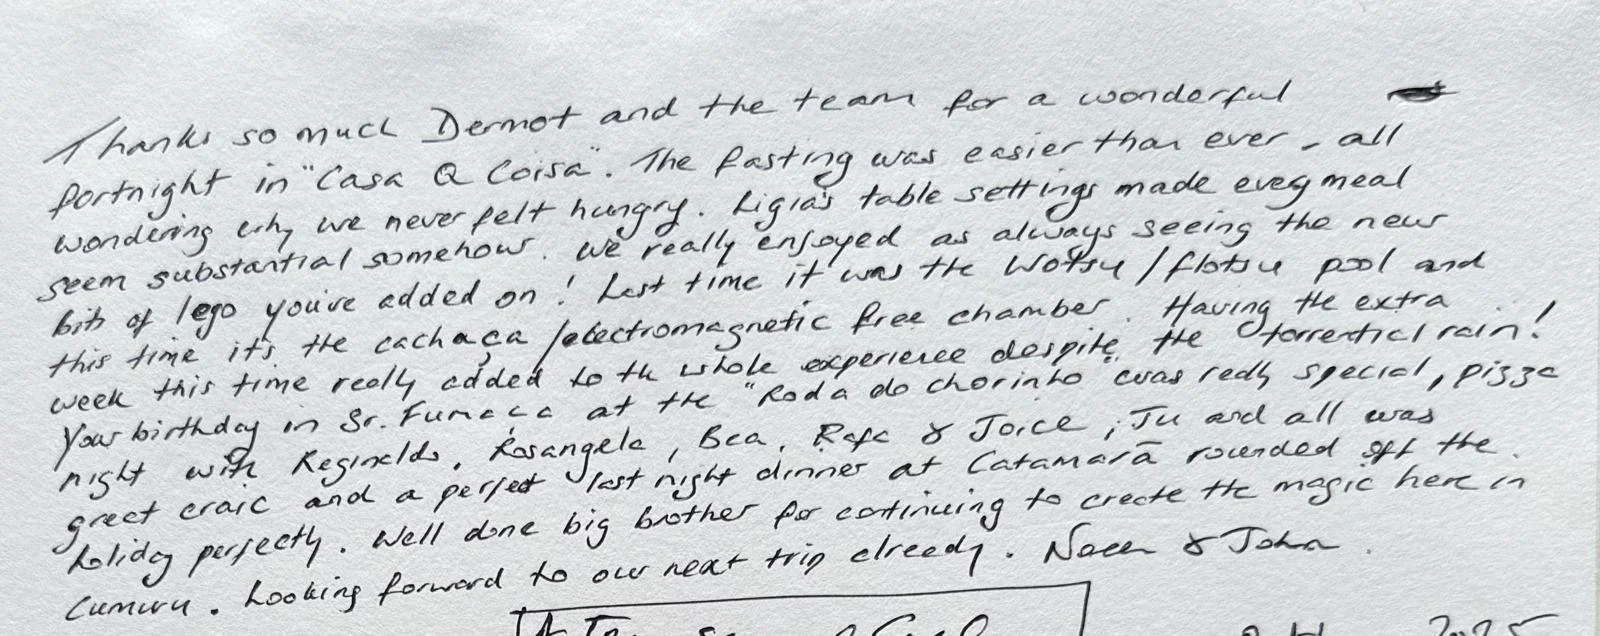 Thanks so much Dermot and the team for a wonderful
fortnight in "Casa Q Coisa". The fasting was easier than ever, all
wondering why we never felt hungry. Ligia's table settings made every meal
seem substantial somehow. We really enjoyed as always seeing the new
bits of lego you've added on! Last time it was the Wotsu/flotsu pool and
this time it's the cachaça/electromagnetic free chamber. Having the extra
week this time really added to the whole experience despite the torrential rain!
Your birthday in Sr. Fumaça at the "Roda do chorinho" was really special, pizza
night with Reginaldo, Rosangela, Bea, Rafa & Joice, Ju and all was
great craic and a perfect last night dinner at Catamarã rounded off the
holiday perfectly. Well done big brother for continuing to create the magic here in
Cumuru. Looking forward to our next trip already. & John.
2025